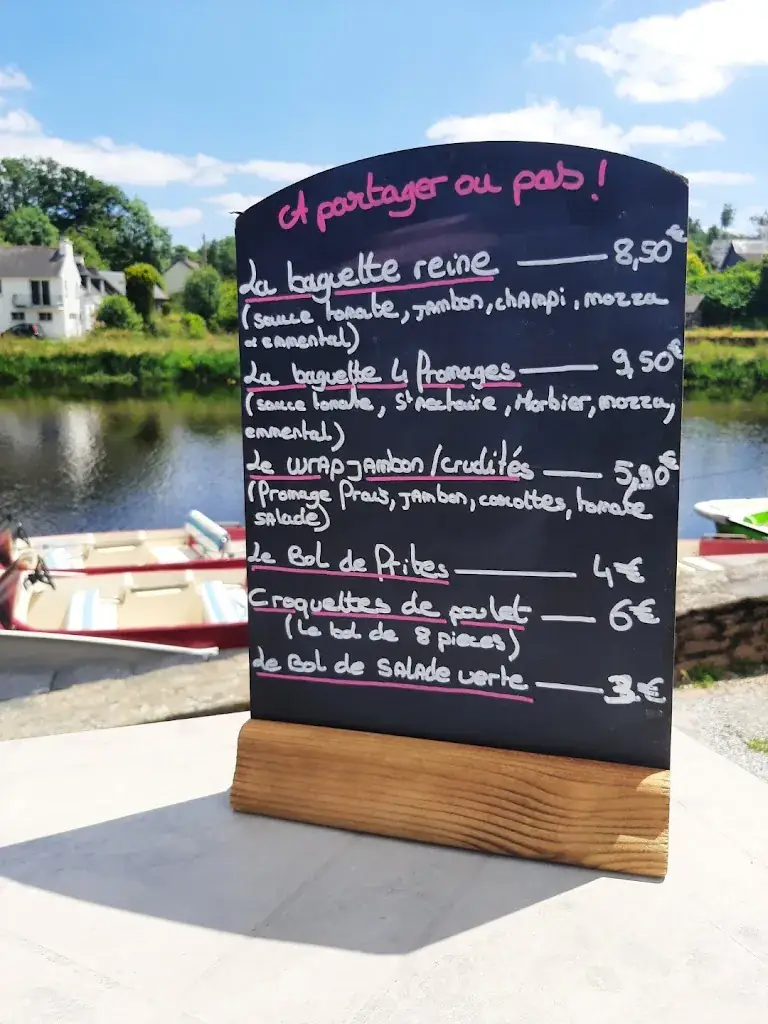 A partager ou pas !
La baguette reine — 8,50€
(sauce tomate, jambon, champi, mozza
& emmental)
La baguette 4 fromages — 9,50€
(sauce tomate, St Nectaire, Morbier, mozza,
emmental)
Le wrap jambon/crudités — 5,90€
(fromage frais, jambon, carottes, tomate
salade)
Le Bol de frites — 4€
Croquettes de poulet — 6€
(Le bol de 8 pieces)
Le Bol de salade verte — 3€